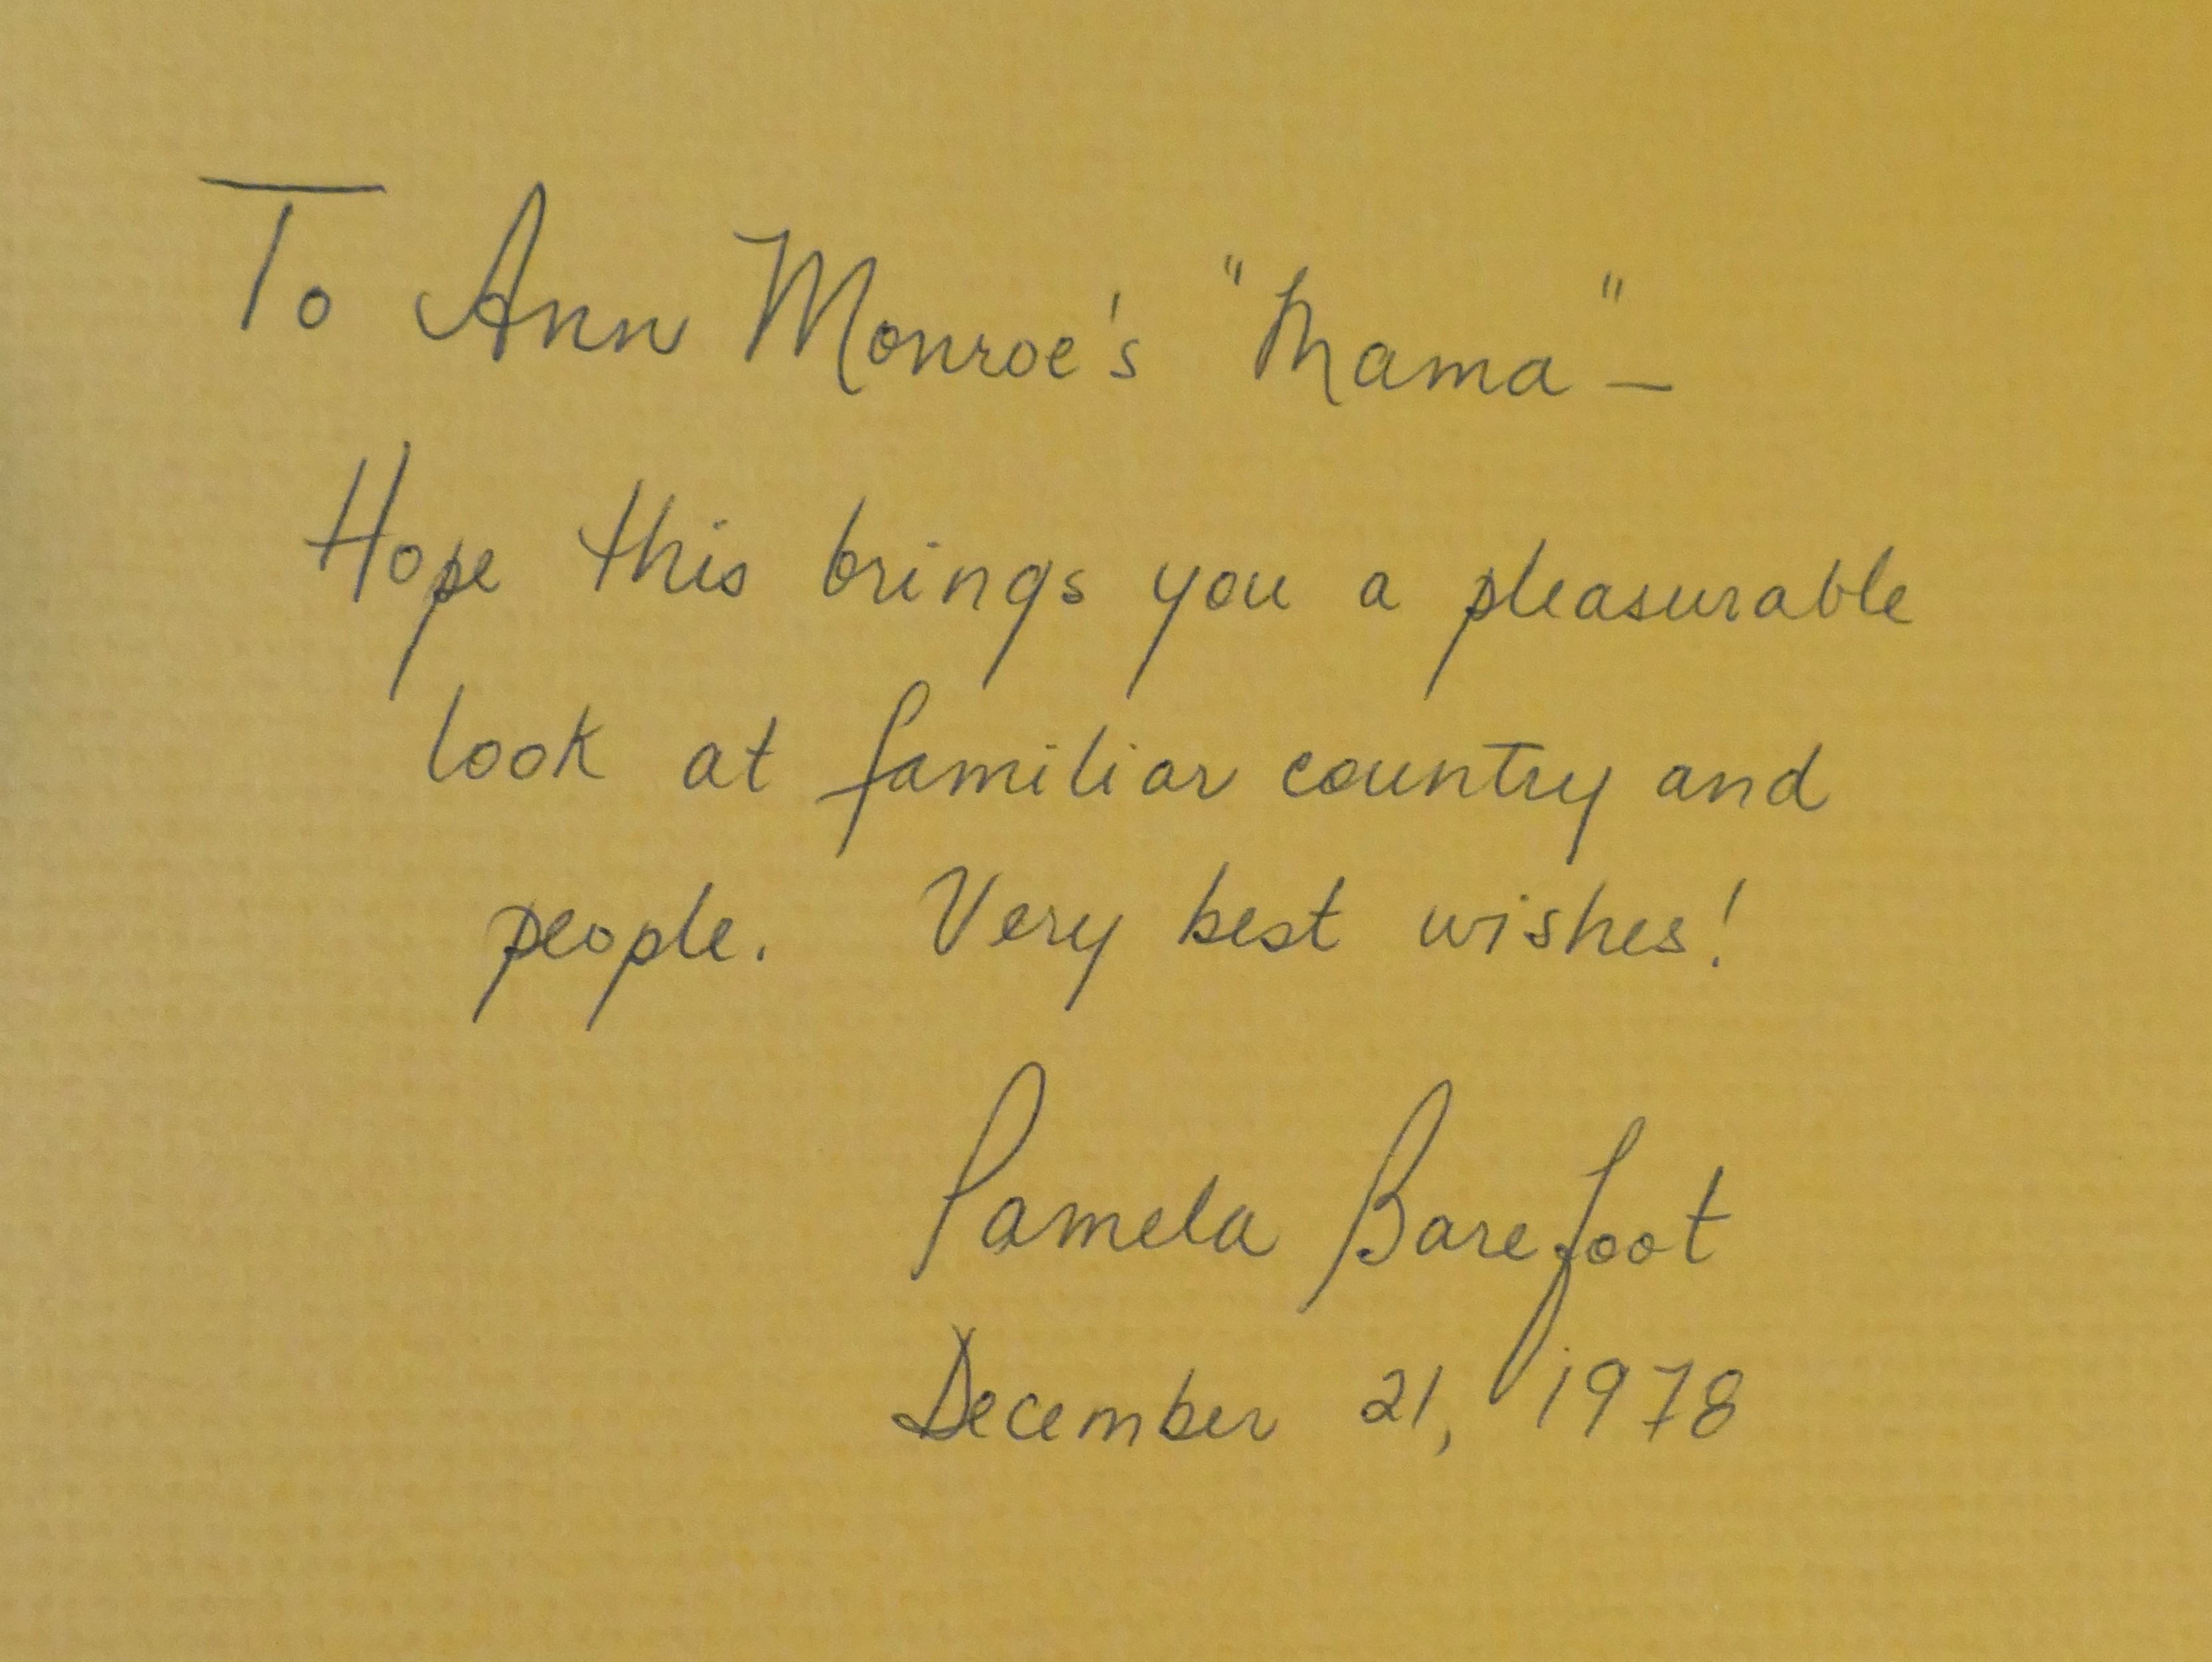 To Ann Monroe's "Mama" –
Hope this brings you a pleasurable
look at familiar country and
people. Very best wishes!
Pamela Barefoot
December 21, 1978